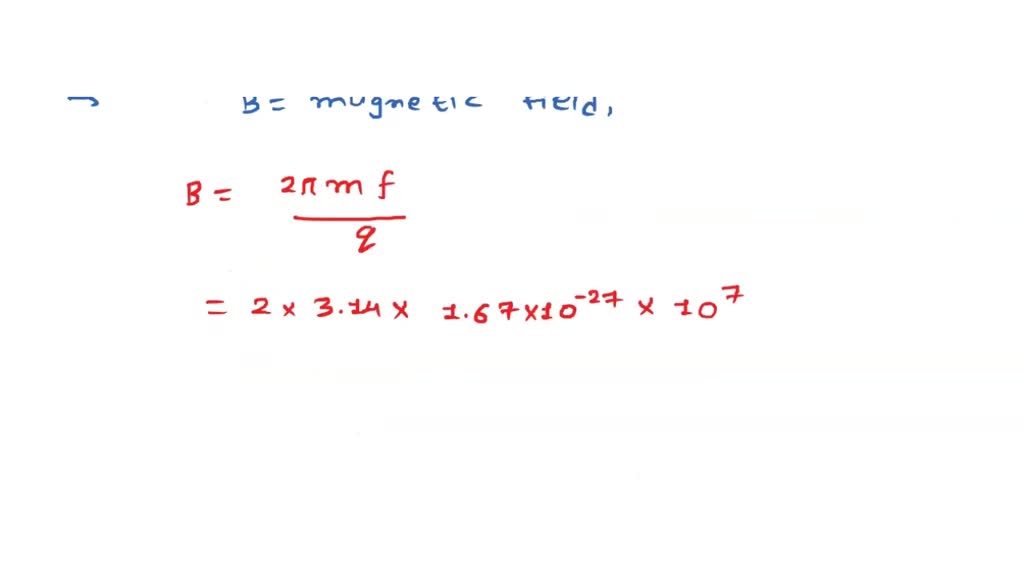 → B = mugnetic field,
B = 2π m f / q
= 2 × 3.14 × 1.67 × 10⁻²⁷ × 10⁷